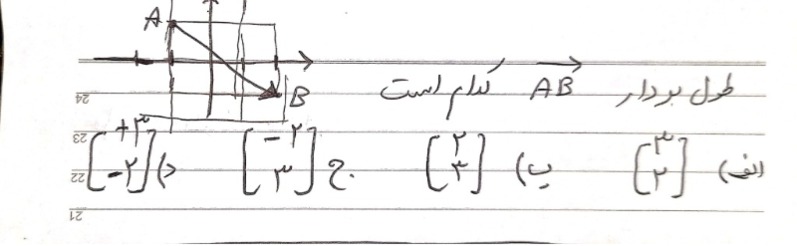 A
B
طول بردار AB کدام است
الف) [۳ ۲] ب) [۲ ۳] ج. [-۲ ۳] د) [+۳ -۲]
24
23
22
21